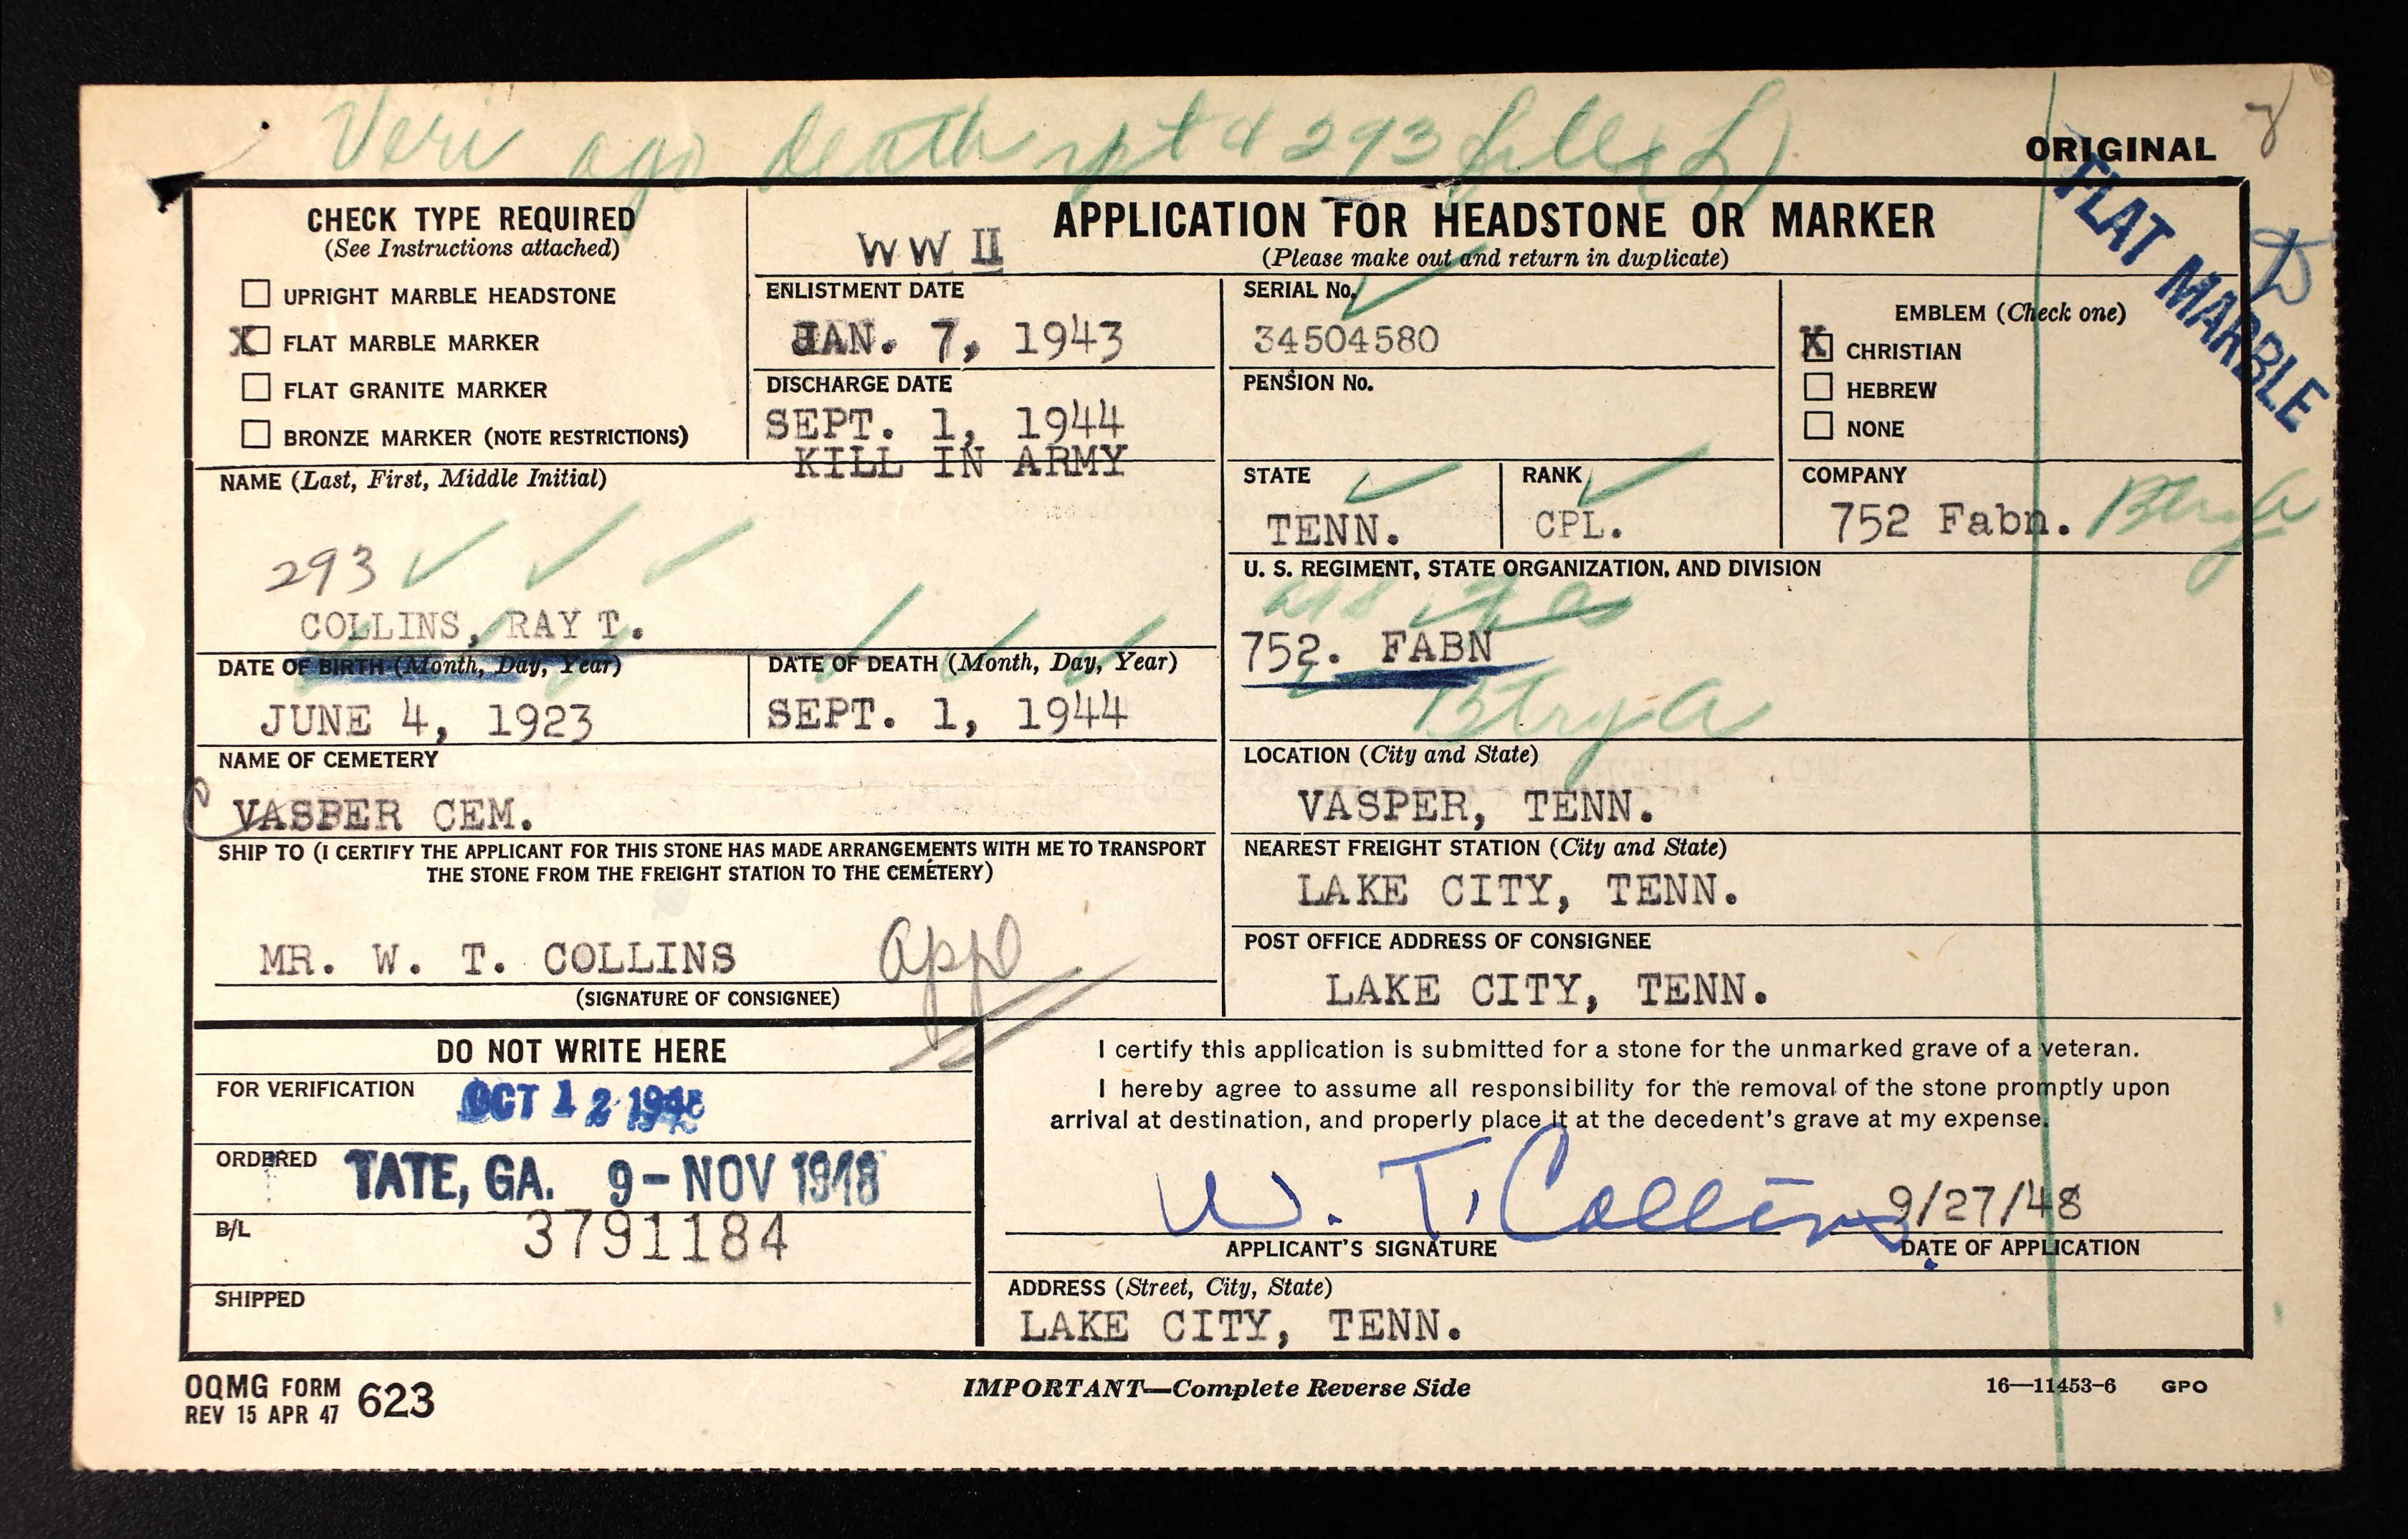 Veri ago death rpt & 293 file
ORIGINAL
FLAT MARBLE
D
CHECK TYPE REQUIRED
(See Instructions attached)
UPRIGHT MARBLE HEADSTONE
X FLAT MARBLE MARKER
FLAT GRANITE MARKER
BRONZE MARKER (NOTE RESTRICTIONS)
WW II
APPLICATION FOR HEADSTONE OR MARKER
(Please make out and return in duplicate)
ENLISTMENT DATE
JAN. 7, 1943
DISCHARGE DATE
SEPT. 1, 1944
KILL IN ARMY
SERIAL No.
34504580
PENSION No.
EMBLEM (Check one)
X CHRISTIAN
HEBREW
NONE
NAME (Last, First, Middle Initial)
293
COLLINS, RAY T.
STATE
TENN.
RANK
CPL.
COMPANY
752 Fabn. Btry A
U. S. REGIMENT, STATE ORGANIZATION, AND DIVISION
752. FABN
Btry A
DATE OF BIRTH (Month, Day, Year)
JUNE 4, 1923
DATE OF DEATH (Month, Day, Year)
SEPT. 1, 1944
NAME OF CEMETERY
VASPER CEM.
LOCATION (City and State)
VASPER, TENN.
SHIP TO (I CERTIFY THE APPLICANT FOR THIS STONE HAS MADE ARRANGEMENTS WITH ME TO TRANSPORT
THE STONE FROM THE FREIGHT STATION TO THE CEMETERY)
MR. W. T. COLLINS appl
(SIGNATURE OF CONSIGNEE)
NEAREST FREIGHT STATION (City and State)
LAKE CITY, TENN.
POST OFFICE ADDRESS OF CONSIGNEE
LAKE CITY, TENN.
DO NOT WRITE HERE
FOR VERIFICATION OCT 12 1948
ORDERED TATE, GA. 9-NOV 1948
B/L 3791184
SHIPPED
I certify this application is submitted for a stone for the unmarked grave of a veteran.
I hereby agree to assume all responsibility for the removal of the stone promptly upon
arrival at destination, and properly place it at the decedent's grave at my expense.
W. T. Collins 9/27/48
APPLICANT'S SIGNATURE DATE OF APPLICATION
ADDRESS (Street, City, State)
LAKE CITY, TENN.
OQMG FORM 623
REV 15 APR 47
IMPORTANT—Complete Reverse Side
16—11453-6 GPO